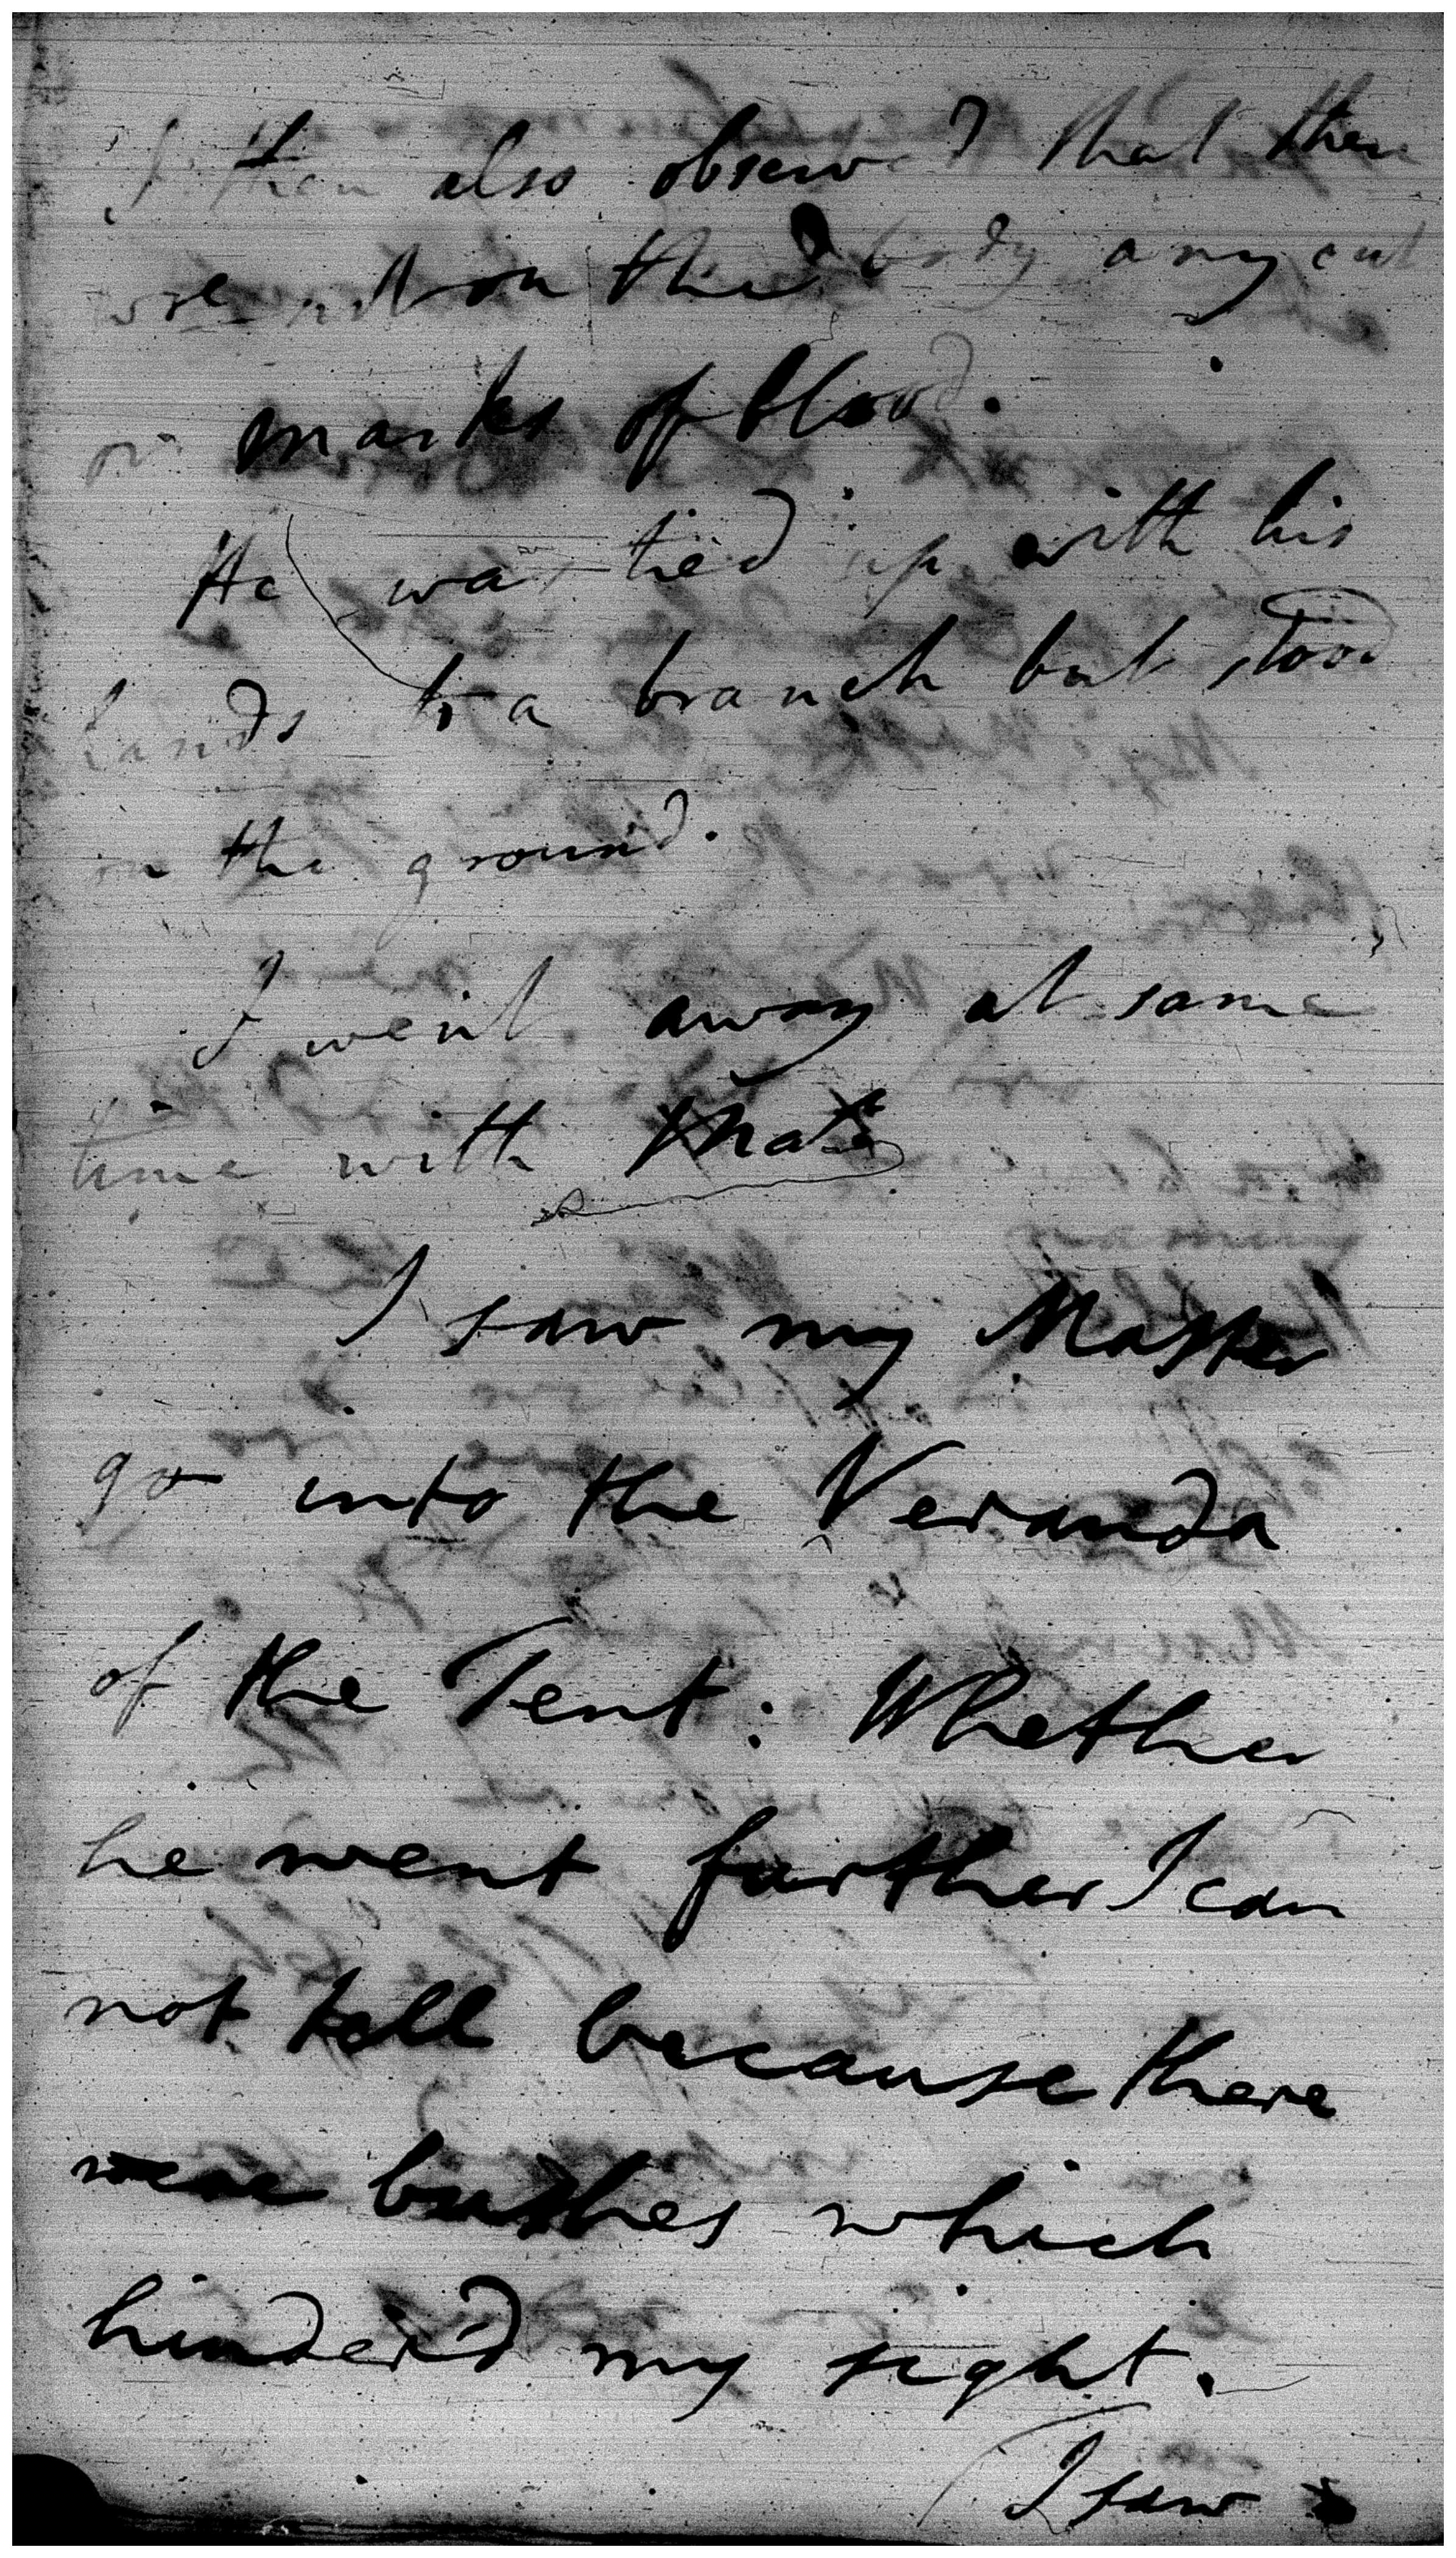 I then also observ'd that there
were not on the body any cut
or marks of blood.
He was tied up with his
hands to a branch but stood
on the ground.
I went away at same
time with
I saw my Master
go into the Veranda
of the Tent: Whether
he went further I can
not tell because there
were bushes which
hinder'd my sight.
I saw